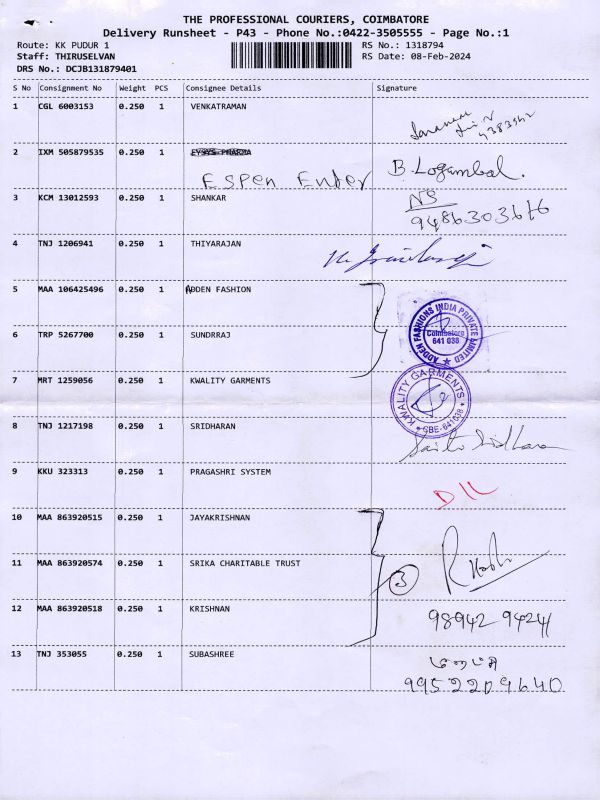 THE PROFESSIONAL COURIERS, COIMBATORE
Delivery Runsheet - P43 - Phone No.:0422-3505555 - Page No.:1
Route: KK PUDUR 1 RS No.: 1318794
Staff: THIRUSELVAN RS Date: 08-Feb-2024
DRS No.: DCJB131879401
S No Consignment No Weight PCS Consignee Details Signature
1 CGL 6003153 0.250 1 VENKATRAMAN
2 IXM 505879535 0.250 1
Espen Enter B. Logambal.
3 KCM 13012593 0.250 1 SHANKAR NS
9486303676
4 TNJ 1206941 0.250 1 THIYARAJAN
5 MAA 106425496 0.250 1 ADDEN FASHION
ADDEN FASHIONS INDIA PRIVATE LIMITED
Coimbatore
641 038
6 TRP 5267700 0.250 1 SUNDRRAJ
7 MRT 1259056 0.250 1 KWALITY GARMENTS
KWALITY GARMENTS
CBE-641038
8 TNJ 1217198 0.250 1 SRIDHARAN
9 KKU 323313 0.250 1 PRAGASHRI SYSTEM
10 MAA 863920515 0.250 1 JAYAKRISHNAN
11 MAA 863920574 0.250 1 SRIKA CHARITABLE TRUST
3
12 MAA 863920518 0.250 1 KRISHNAN
98942 94241
13 TNJ 353055 0.250 1 SUBASHREE
9952209640